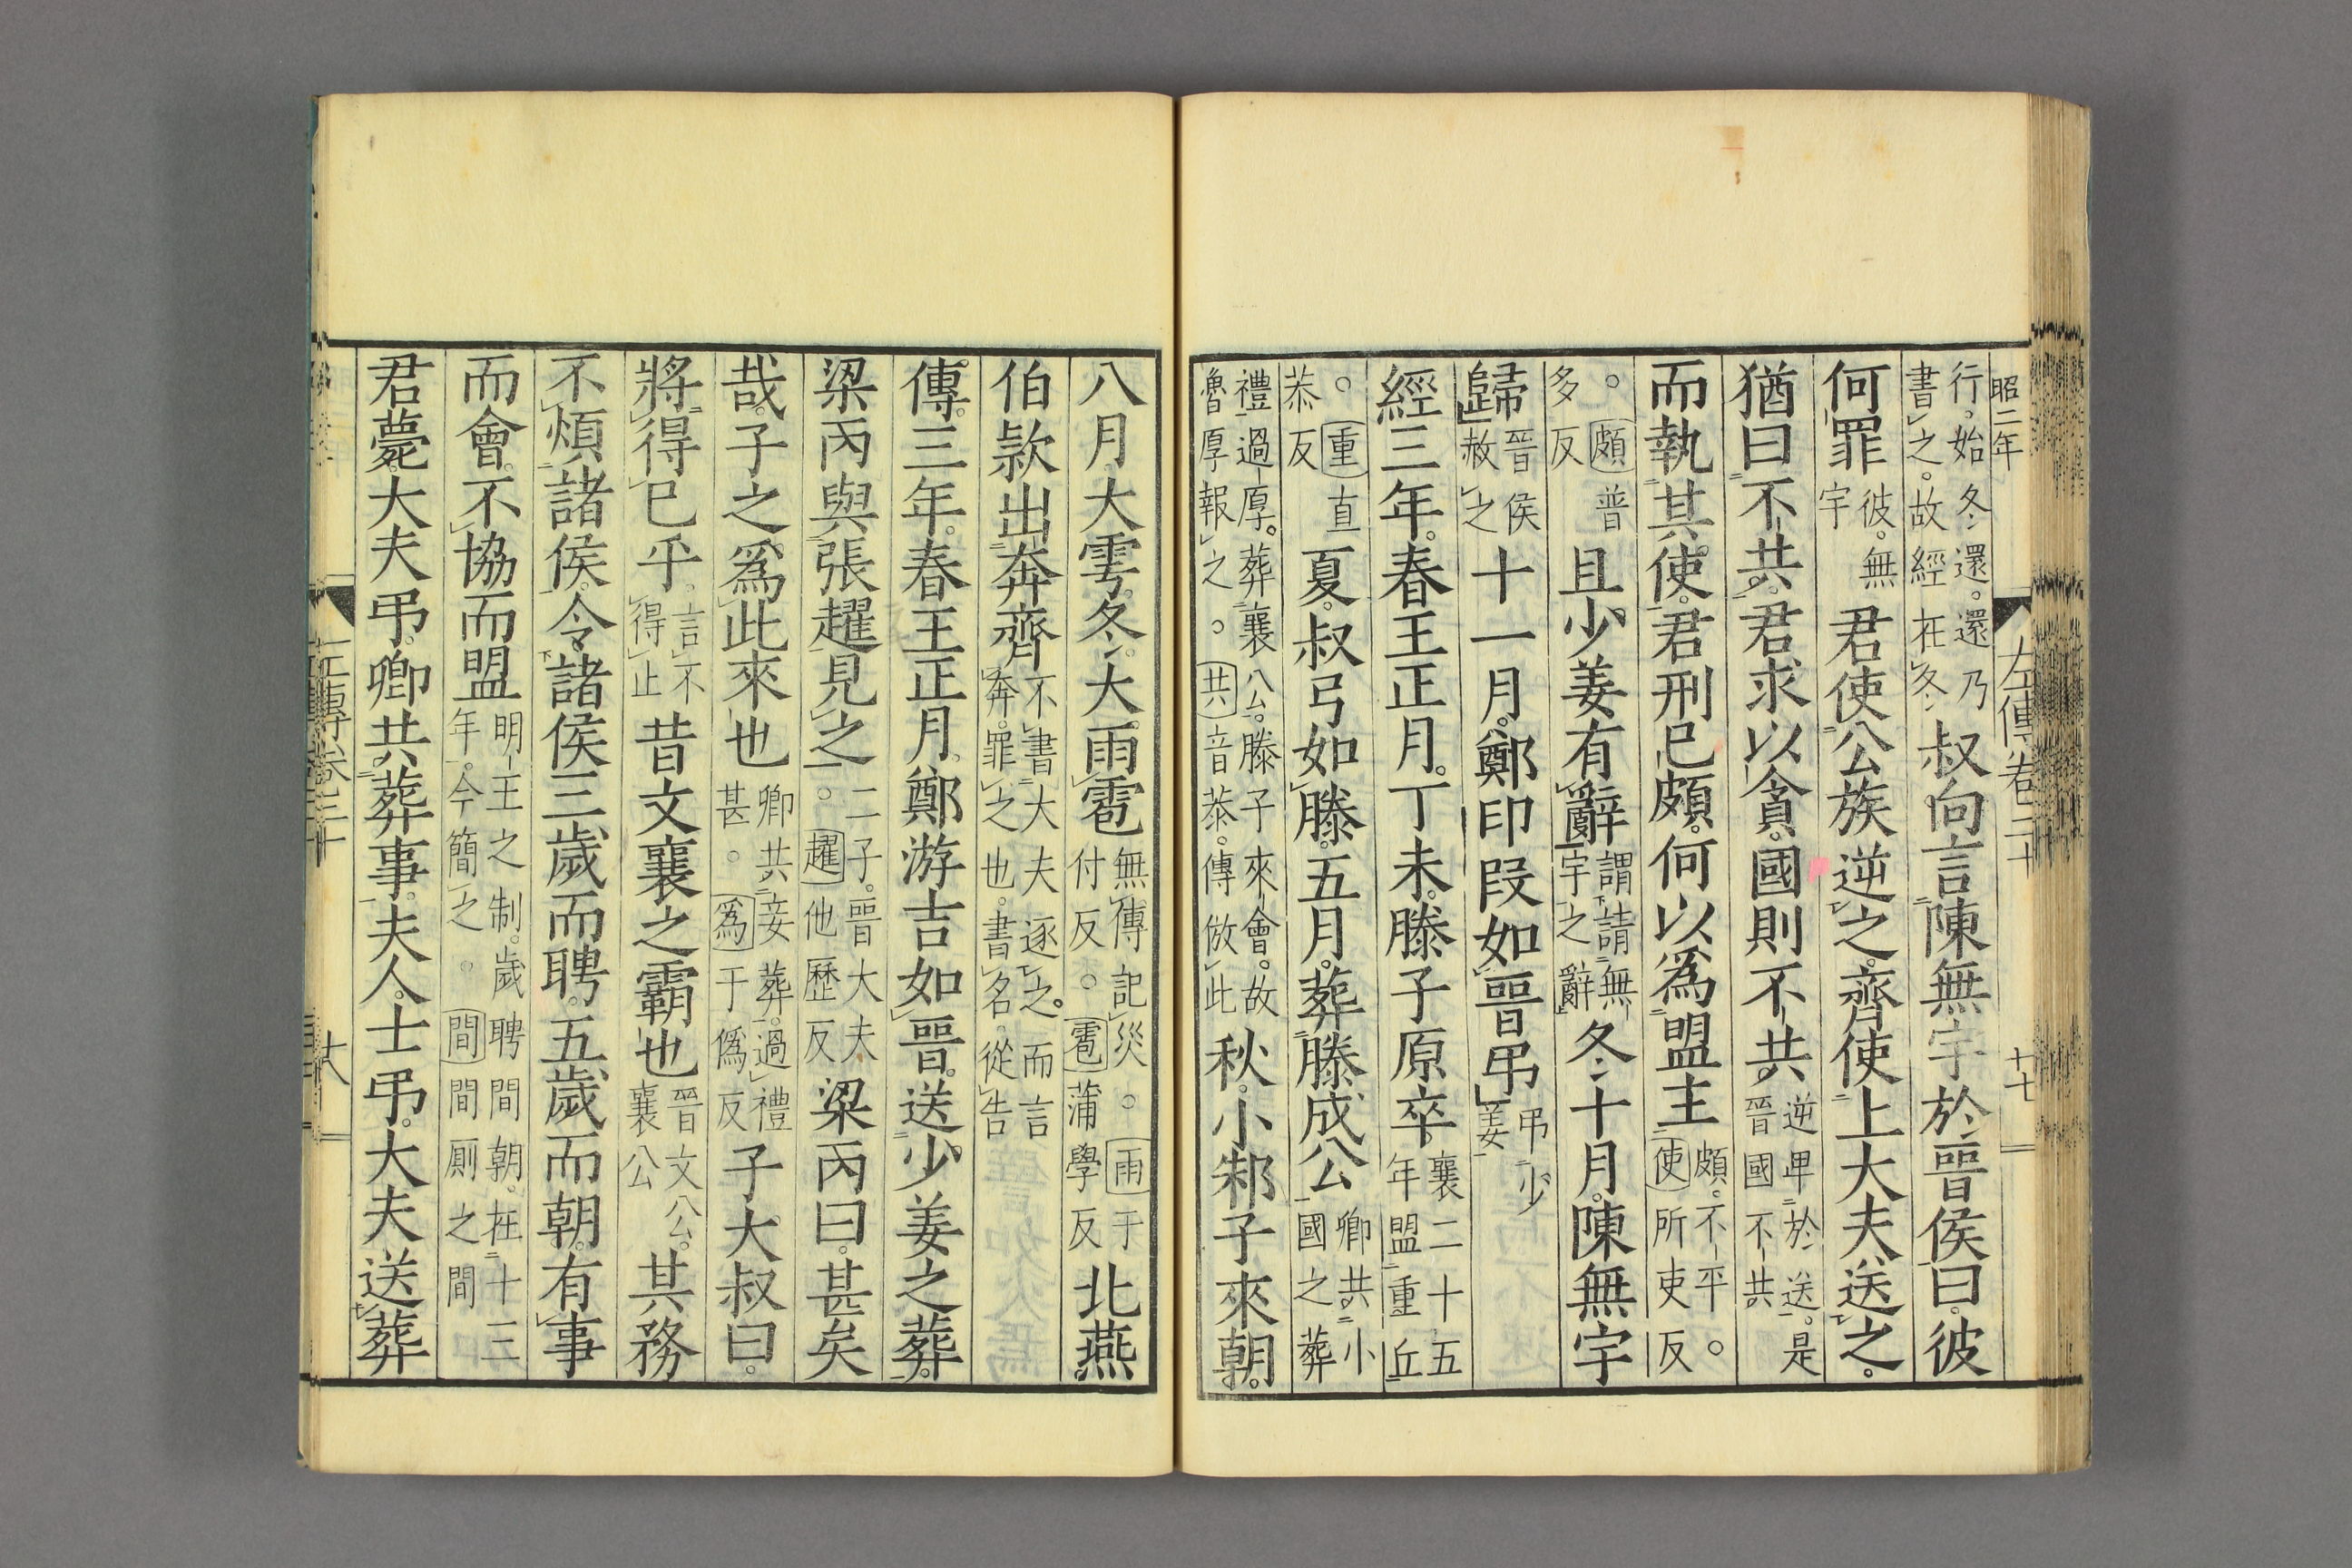 昭二年
左傳卷二十
十七
行。始冬還。還乃書之。故經在冬叔向言陳無宇於晉侯曰。彼
何罪彼。無宇君使公族逆之。齊使上大夫送之。
猶曰不共。君求以貪。國則不共逆卑於送。是晉國不共
而執其使。君刑已頗。何以爲盟主頗。不平。○使所吏反
○頗普多反且少姜有辭謂請無宇之辭冬十月。陳無宇
歸晉侯赦之十一月。鄭印段如晉弔弔少姜
經三年。春王正月。丁未。滕子原卒。襄二十五年盟重丘
○重直恭反夏。叔弓如滕。五月。葬滕成公卿共小國之葬
禮過厚。葬襄公。滕子來會。故魯厚報之。○共音恭。傳倣此秋。小邾子來朝。
八月。大雩。冬。大雨雹無傳記災。○雨于付反。○雹蒲學反北燕
伯款出奔齊不書大夫逐之。而言奔。罪之也。書名。從告
傳。三年。春王正月。鄭游吉如晉。送少姜之葬。
梁丙與張趯見之二子。晉大夫○趯他歷反梁丙曰。甚矣
哉。子之爲此來也卿共妾葬。過禮甚。○爲于僞反子大叔曰。
將得已乎。言不得止昔文襄之霸也晉文公襄公其務
不煩諸侯。令諸侯三歲而聘。五歲而朝。有事
而會。不協而盟明王之制。歲聘間朝。在十三年。今簡之。○間間廁之間
君薨。大夫弔。卿共葬事。夫人。士弔。大夫送葬